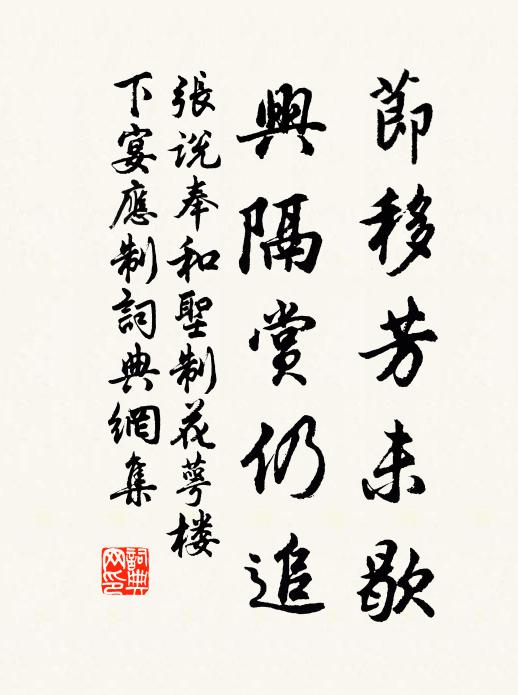 節移芳未歇
興隔賞仍追
張说奉和聖制花萼楼
下宴應制詞典網集
詞典
网印